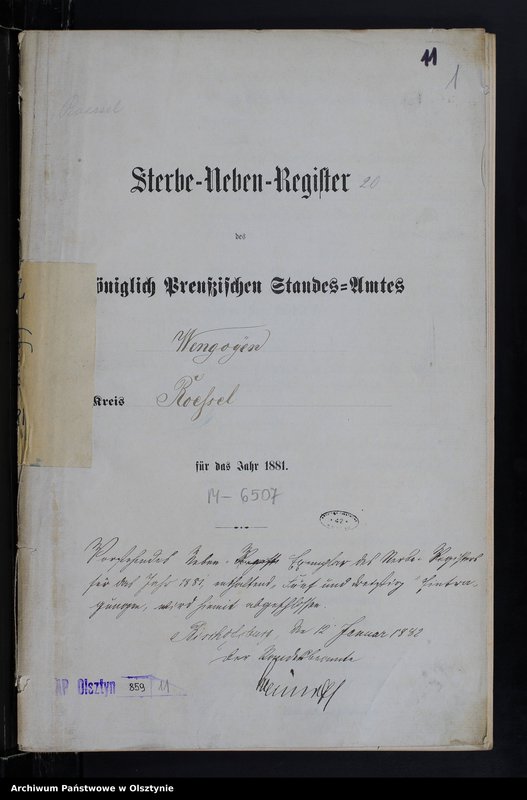 11
1
Roessel
Sterbe-Neben-Register 20
des
öniglich Preußischen Standes-Amtes
Wengoyen
Kreis Roessel
für das Jahr 1881.
M-6507
42
Vorstehendes Neben- Exemplar des Sterbe-Registers
für das Jahr 1881, enthaltend, fünf und dreißig Eintra-
gungen, wird hiemit abgeschlossen.
den 12 Januar 1882
Der Standesbeamte
AP Olsztyn 859 11
Archiwum Państwowe w Olsztynie